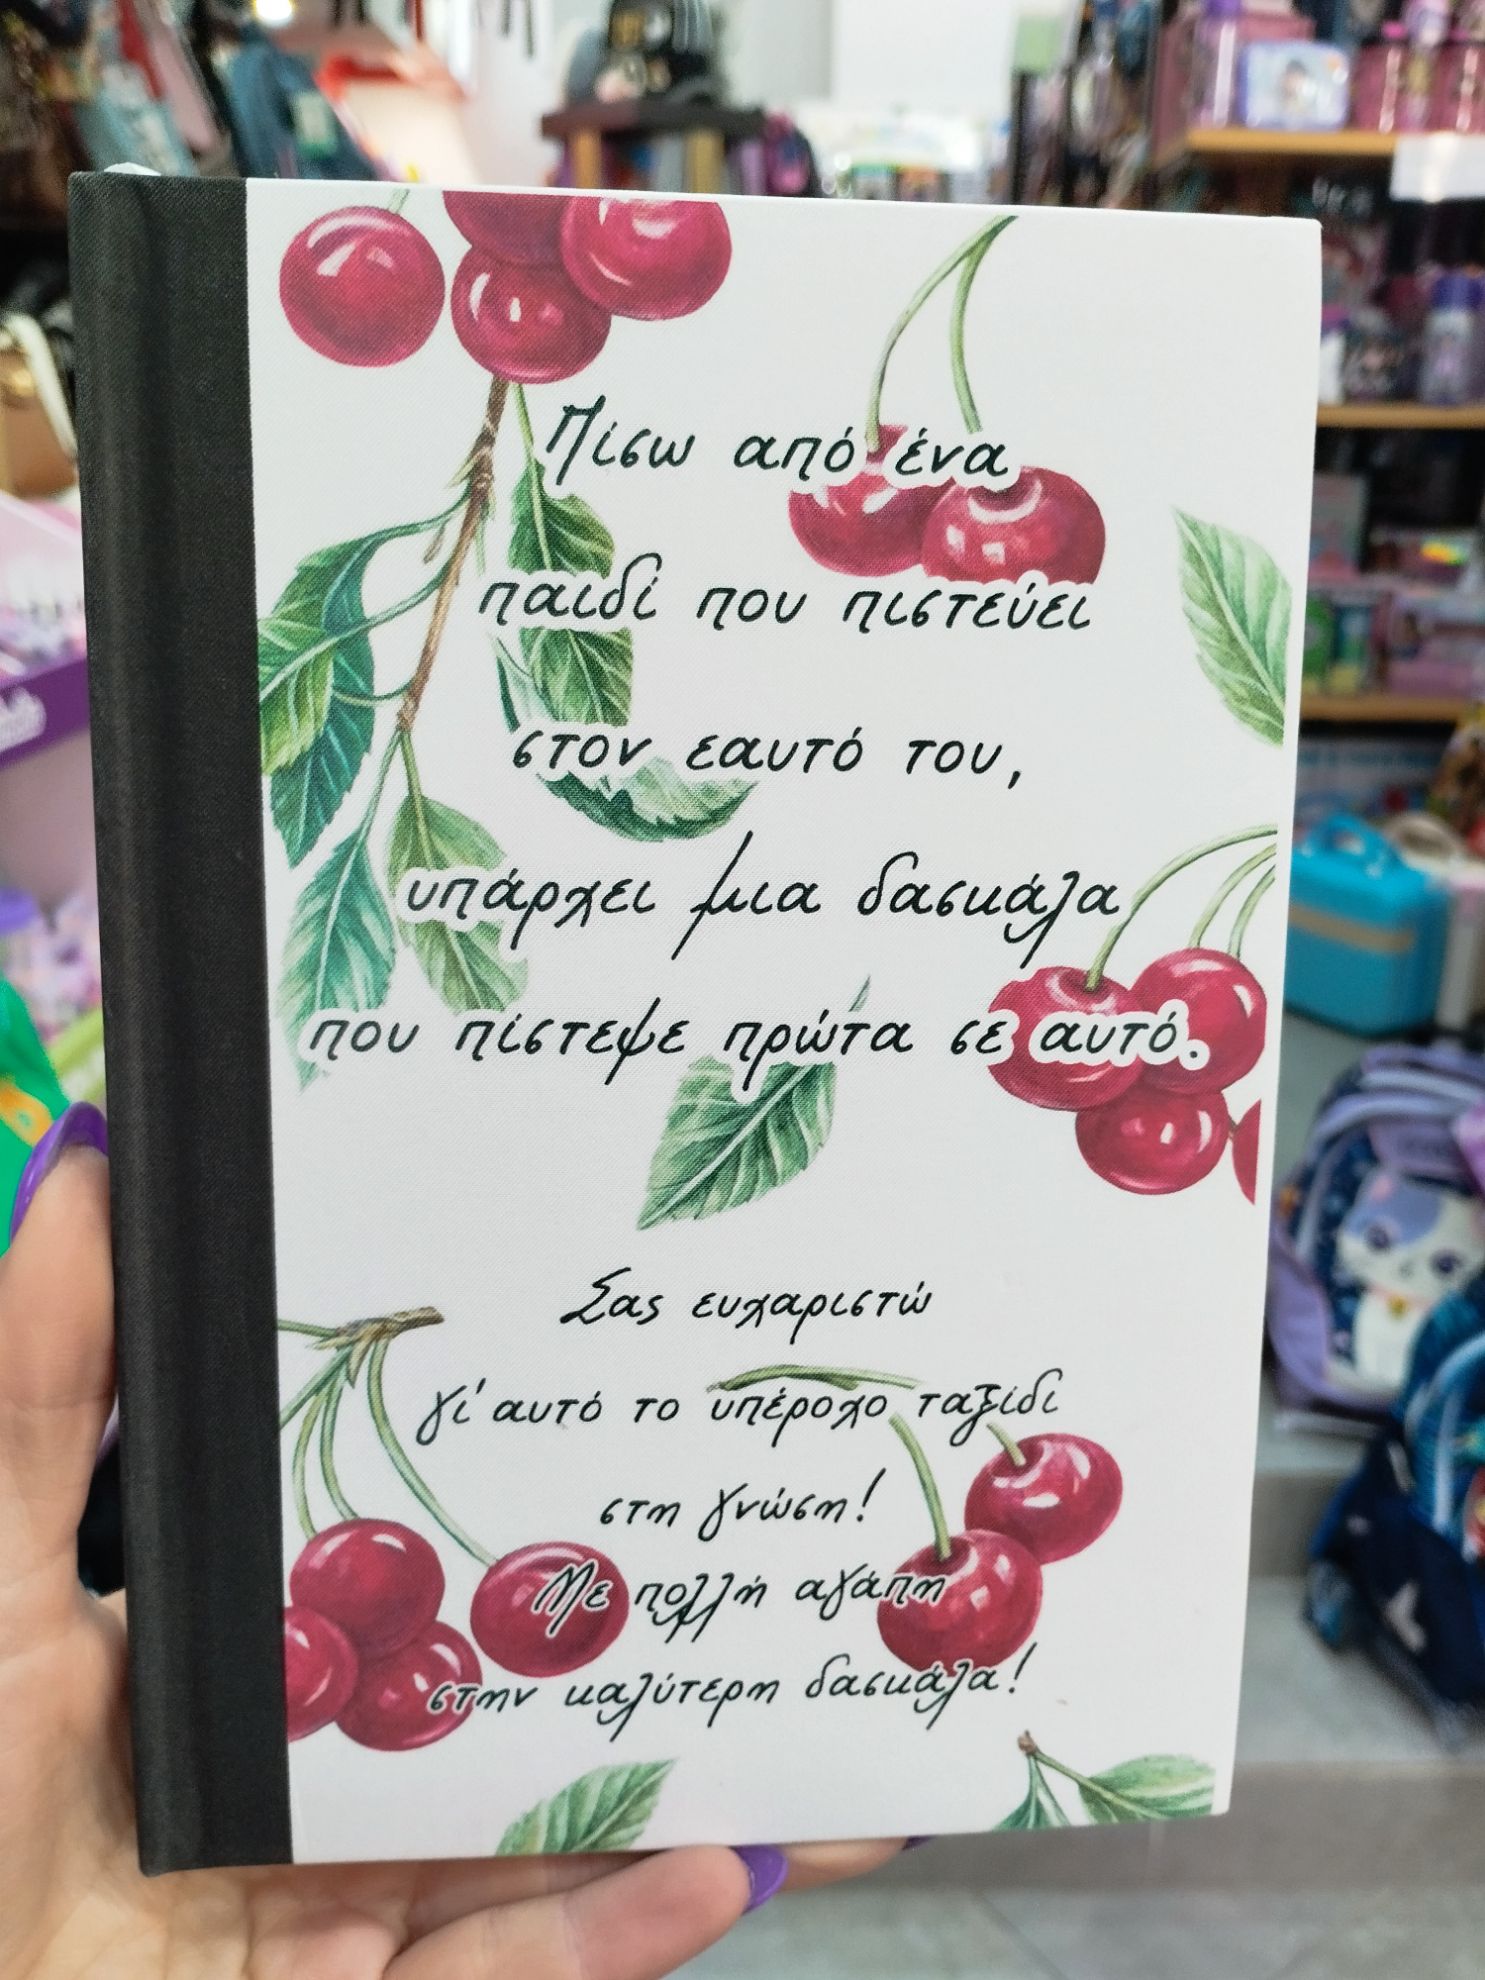 Πίσω από ένα
παιδί που πιστεύει
στον εαυτό του,
υπάρχει μια δασκάλα
που πίστεψε πρώτα σε αυτό.
Σας ευχαριστώ
γι' αυτό το υπέροχο ταξίδι
στη γνώση!
Με πολλή αγάπη
στην καλύτερη δασκάλα!